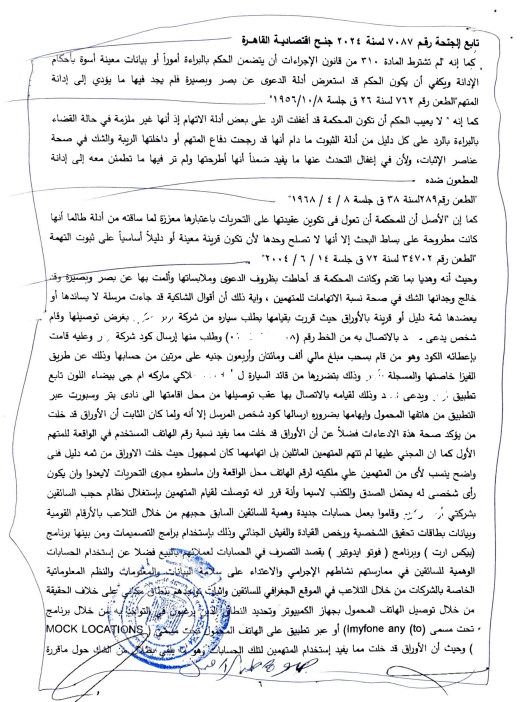 تابع الجنحة رقم ٧٠٨٧ لسنة ٢٠٢٤ جنح اقتصادية القاهرة
كما إنه "لم تشترط المادة ٣١٠ من قانون الإجراءات أن يتضمن الحكم بالبراءة أموراً أو بيانات معينة أسوة بأحكام
الإدانة ويكفي أن يكون الحكم قد استعرض أدلة الدعوى عن بصر وبصيرة فلم يجد فيها ما يؤدي إلى إدانة
المتهم "الطعن رقم ٧٦٢ لسنة ٢٦ ق جلسة ١٩٥٦/١٠/٨"
كما إنه " لا يعيب الحكم أن تكون المحكمة قد أغفلت الرد على بعض أدلة الاتهام إذ أنها غير ملزمة في حالة القضاء
بالبراءة بالرد على كل دليل من أدلة الثبوت ما دام أنها قد رجحت دفاع المتهم أو داخلتها الريبة والشك في صحة
عناصر الإثبات، ولأن في إغفال التحدث عنها ما يفيد ضمناً أنها أطرحتها ولم تر فيها ما تطمئن معه إلى إدانة
المطعون ضده
"الطعن رقم ٢٨٩ لسنة ٣٨ ق جلسة ٨ / ٤ / ١٩٦٨"
كما إن "الأصل أن للمحكمة أن تعول في تكوين عقيدتها على التحريات باعتبارها معززة لما ساقته من أدلة طالما أنها
كانت مطروحة على بساط البحث إلا أنها لا تصلح وحدها لأن تكون قرينة معينة أو دليلاً أساسياً على ثبوت التهمة
"الطعن رقم ٣٤٧٠٢ لسنة ٧٢ ق جلسة ١٤ / ٦ / ٢٠٠٤"
وحيث أنه وهديا بما تقدم وكانت المحكمة قد أحاطت بظروف الدعوى وملابساتها وألمت بها عن بصر وبصيرة وقد
خالج وجدانها الشك في صحة نسبة الاتهامات للمتهمين ، وآية ذلك أن أقوال الشاكية قد جاءت مرسلة لا يساندها أو
يعضدها ثمة دليل أو قرينة بالأوراق حيث قررت بقيامها بطلب سياره من شركة بغرض توصيلها وقام
شخص يدعى بالاتصال به من الخط رقم وطلب منها إرسال كود شركة وعليه قامت
بإعطائه الكود وهو من قام بسحب مبلغ مالي ألف ومائتان وأربعون جنيه على مرتين من حسابها وذلك عن طريق
الفيزا خاصتها والمسجلة وذلك بتضررها من قائد السيارة ل ملاكي ماركه ام جى بيضاء اللون تابع
تطبيق ويدعى وذلك لقيامه بالاتصال بها عقب توصيلها من محل اقامتها الى نادى بتر وسبورت عبر
التطبيق من هاتفها المحمول وإيهامها بضروره ارسالها كود شخص المرسل إلا أنه ولما كان الثابت أن الأوراق قد خلت
من يؤكد صحة هذة الادعاءات فضلاً عن أن الأوراق قد خلت مما يفيد نسبة رقم الهاتف المستخدم في الواقعة للمتهم
الأول كما ان المجني عليها لم تتهم المتهمين الماثلين بل اتهامهما كان لمجهول حيث خلت الاوراق من ثمه دليل فنى
واضح ينسب لأى من المتهمين علي ملكيته لرقم الهاتف محل الواقعة وان ماسطره مجرى التحريات لايعدوا وان يكون
رأى شخصي له يحتمل الصدق والكذب لاسيما وأنة قرر انه توصلت لقيام المتهمين بإستغلال نظام حجب السائقين
بشركتي وقاموا بعمل حسابات جديدة وهمية للسائقين السابق حجبهم من خلال التلاعب بالأرقام القومية
وبيانات بطاقات تحقيق الشخصية ورخص القيادة والفيش الجنائي وذلك بإستخدام برامج التصميمات ومن بينها برنامج
(بيكس ارت ) وبرنامج ( فوتو ايدوتير ) بقصد التصرف في الحسابات لعملائهم بالبيع فضلا عن إستخدام الحسابات
الوهمية للسائقين في ممارستهم نشاطهم الإجرامي والاعتداء على سلامة البيانات والمعلومات والنظم المعلوماتية
الخاصة بالشركات من خلال التلاعب في الموقع الجغرافي للسائقين واثبات تواجدهم بنطاق مكاني على خلاف الحقيقة
من خلال توصيل الهاتف المحمول بجهاز الكمبيوتر وتحديد النطاق يرغبون في التواجد به من خلال برنامج
تحت مسمى (Imyfone any (to) أو عبر تطبيق على الهاتف المحمول تحت مسمي ( MOCK LOCATIONS
) وحيث أن الأوراق قد خلت مما يفيد إستخدام المتهمين لتلك الحسابات وهو ما من الشك حول ماقررة
٦